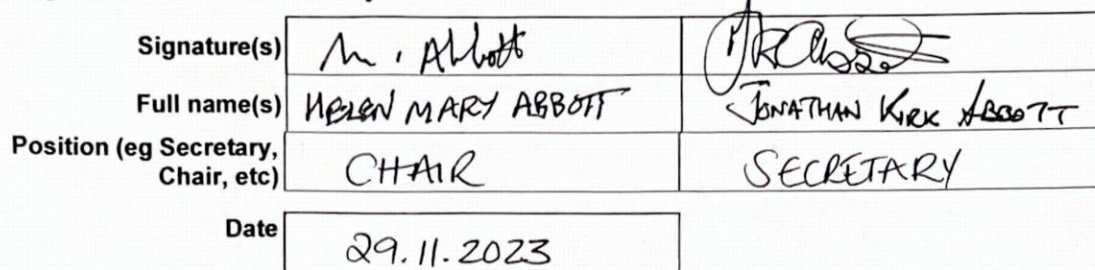 Signature(s) M. Abbott
Full name(s) HELEN MARY ABBOTT JONATHAN KIRK ABBOTT
Position (eg Secretary,
Chair, etc) CHAIR SECRETARY
Date 29.11.2023